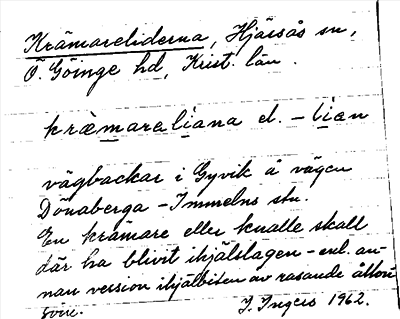 Krämareliderna, Hjärsås sn,
Ö. Göinge hd, Krist. län.
kræ̀maraliana el. -lian
vägbackar i Gyvik å vägen
Dönaberga - Immelns stn.
En krämare eller knalle skall
där ha blivit ihjälslagen - enl. an-
nan version ihjälbiten av rasande åkton
J. Ingers 1962.